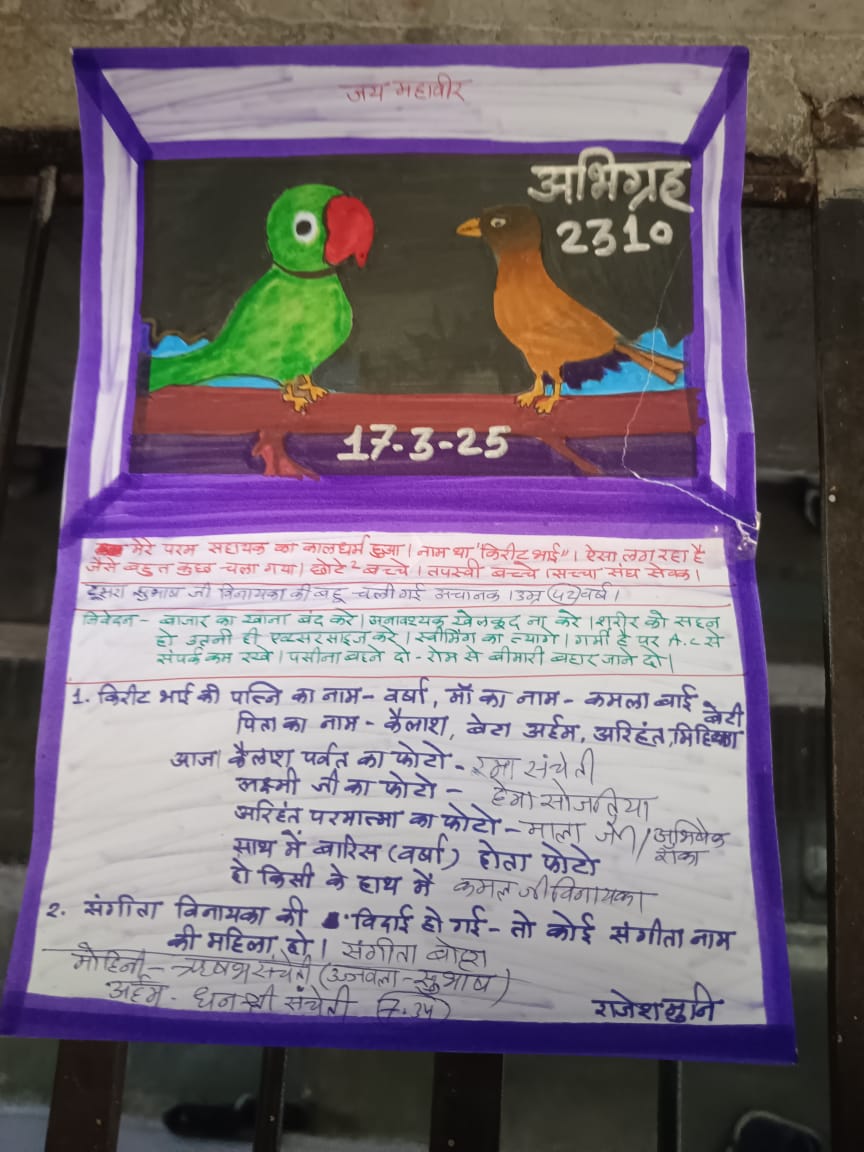 जय महावीर
अभिग्रह
2310
17-3-25
मेरे परम सहायक का कालधर्म हुआ। नाम था "किरीट भाई"। ऐसा लग रहा है
जैसे बहुत कुछ चला गया। छोटे २ बच्चे। तपस्वी बच्चे। सच्चा संघ सेवक।
दूसरा सुभाष जी विनायका की बहू चली गई अचानक। उम्र (42) वर्ष।
निवेदन - बाजार का खाना बंद करे। अनावश्यक खेलकूद ना करे। शरीर को सहन
हो उतनी ही एक्सरसाइज करे। स्वीमिंग का त्यागे। गर्मी है पर A.C से
संपर्क कम रखे। पसीना बहने दो - रोम से बीमारी बहार जाने दो।
1. किरीट भाई की पत्नि का नाम - वर्षा, माँ का नाम - कमला बाई बेटी
पिता का नाम - कैलाश, बेटा अर्हम, अरिहंत,
आजा कैलाश पर्वत का फोटो - रमा संचेती
लक्ष्मी जी का फोटो - हेमा सोजतिया
अरिहंत परमात्मा का फोटो - माला जैन / अभिषेक
रांका
साथ में बारिस (वर्षा) होता फोटो
हो किसी के हाथ में कमल जी विनायका
2. संगीता विनायका की विदाई हो गई - तो कोई संगीता नाम
की महिला हो। संगीता बोहरा
मोहिनी - ऋषभ संचेती (उज्वला - सुभाष)
अर्हम - धनश्री संचेती (7.34)
राजेश मुनि